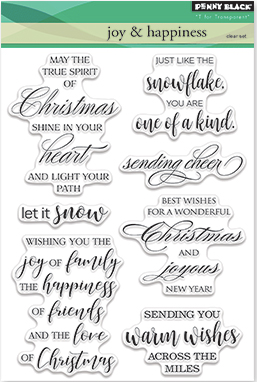 PENNY BLACK
"T" for Transparent
joy & happiness
clear set
MAY THE
TRUE SPIRIT
OF
Christmas
SHINE IN YOUR
heart
AND LIGHT YOUR
PATH
let it snow
WISHING YOU THE
joy of family
THE happiness
of friends
AND THE love
OF Christmas
JUST LIKE THE
snowflake,
YOU ARE
one of a kind.
sending cheer
BEST WISHES
FOR A WONDERFUL
Christmas
AND
joyous
NEW YEAR!
SENDING YOU
warm wishes
ACROSS THE
MILES